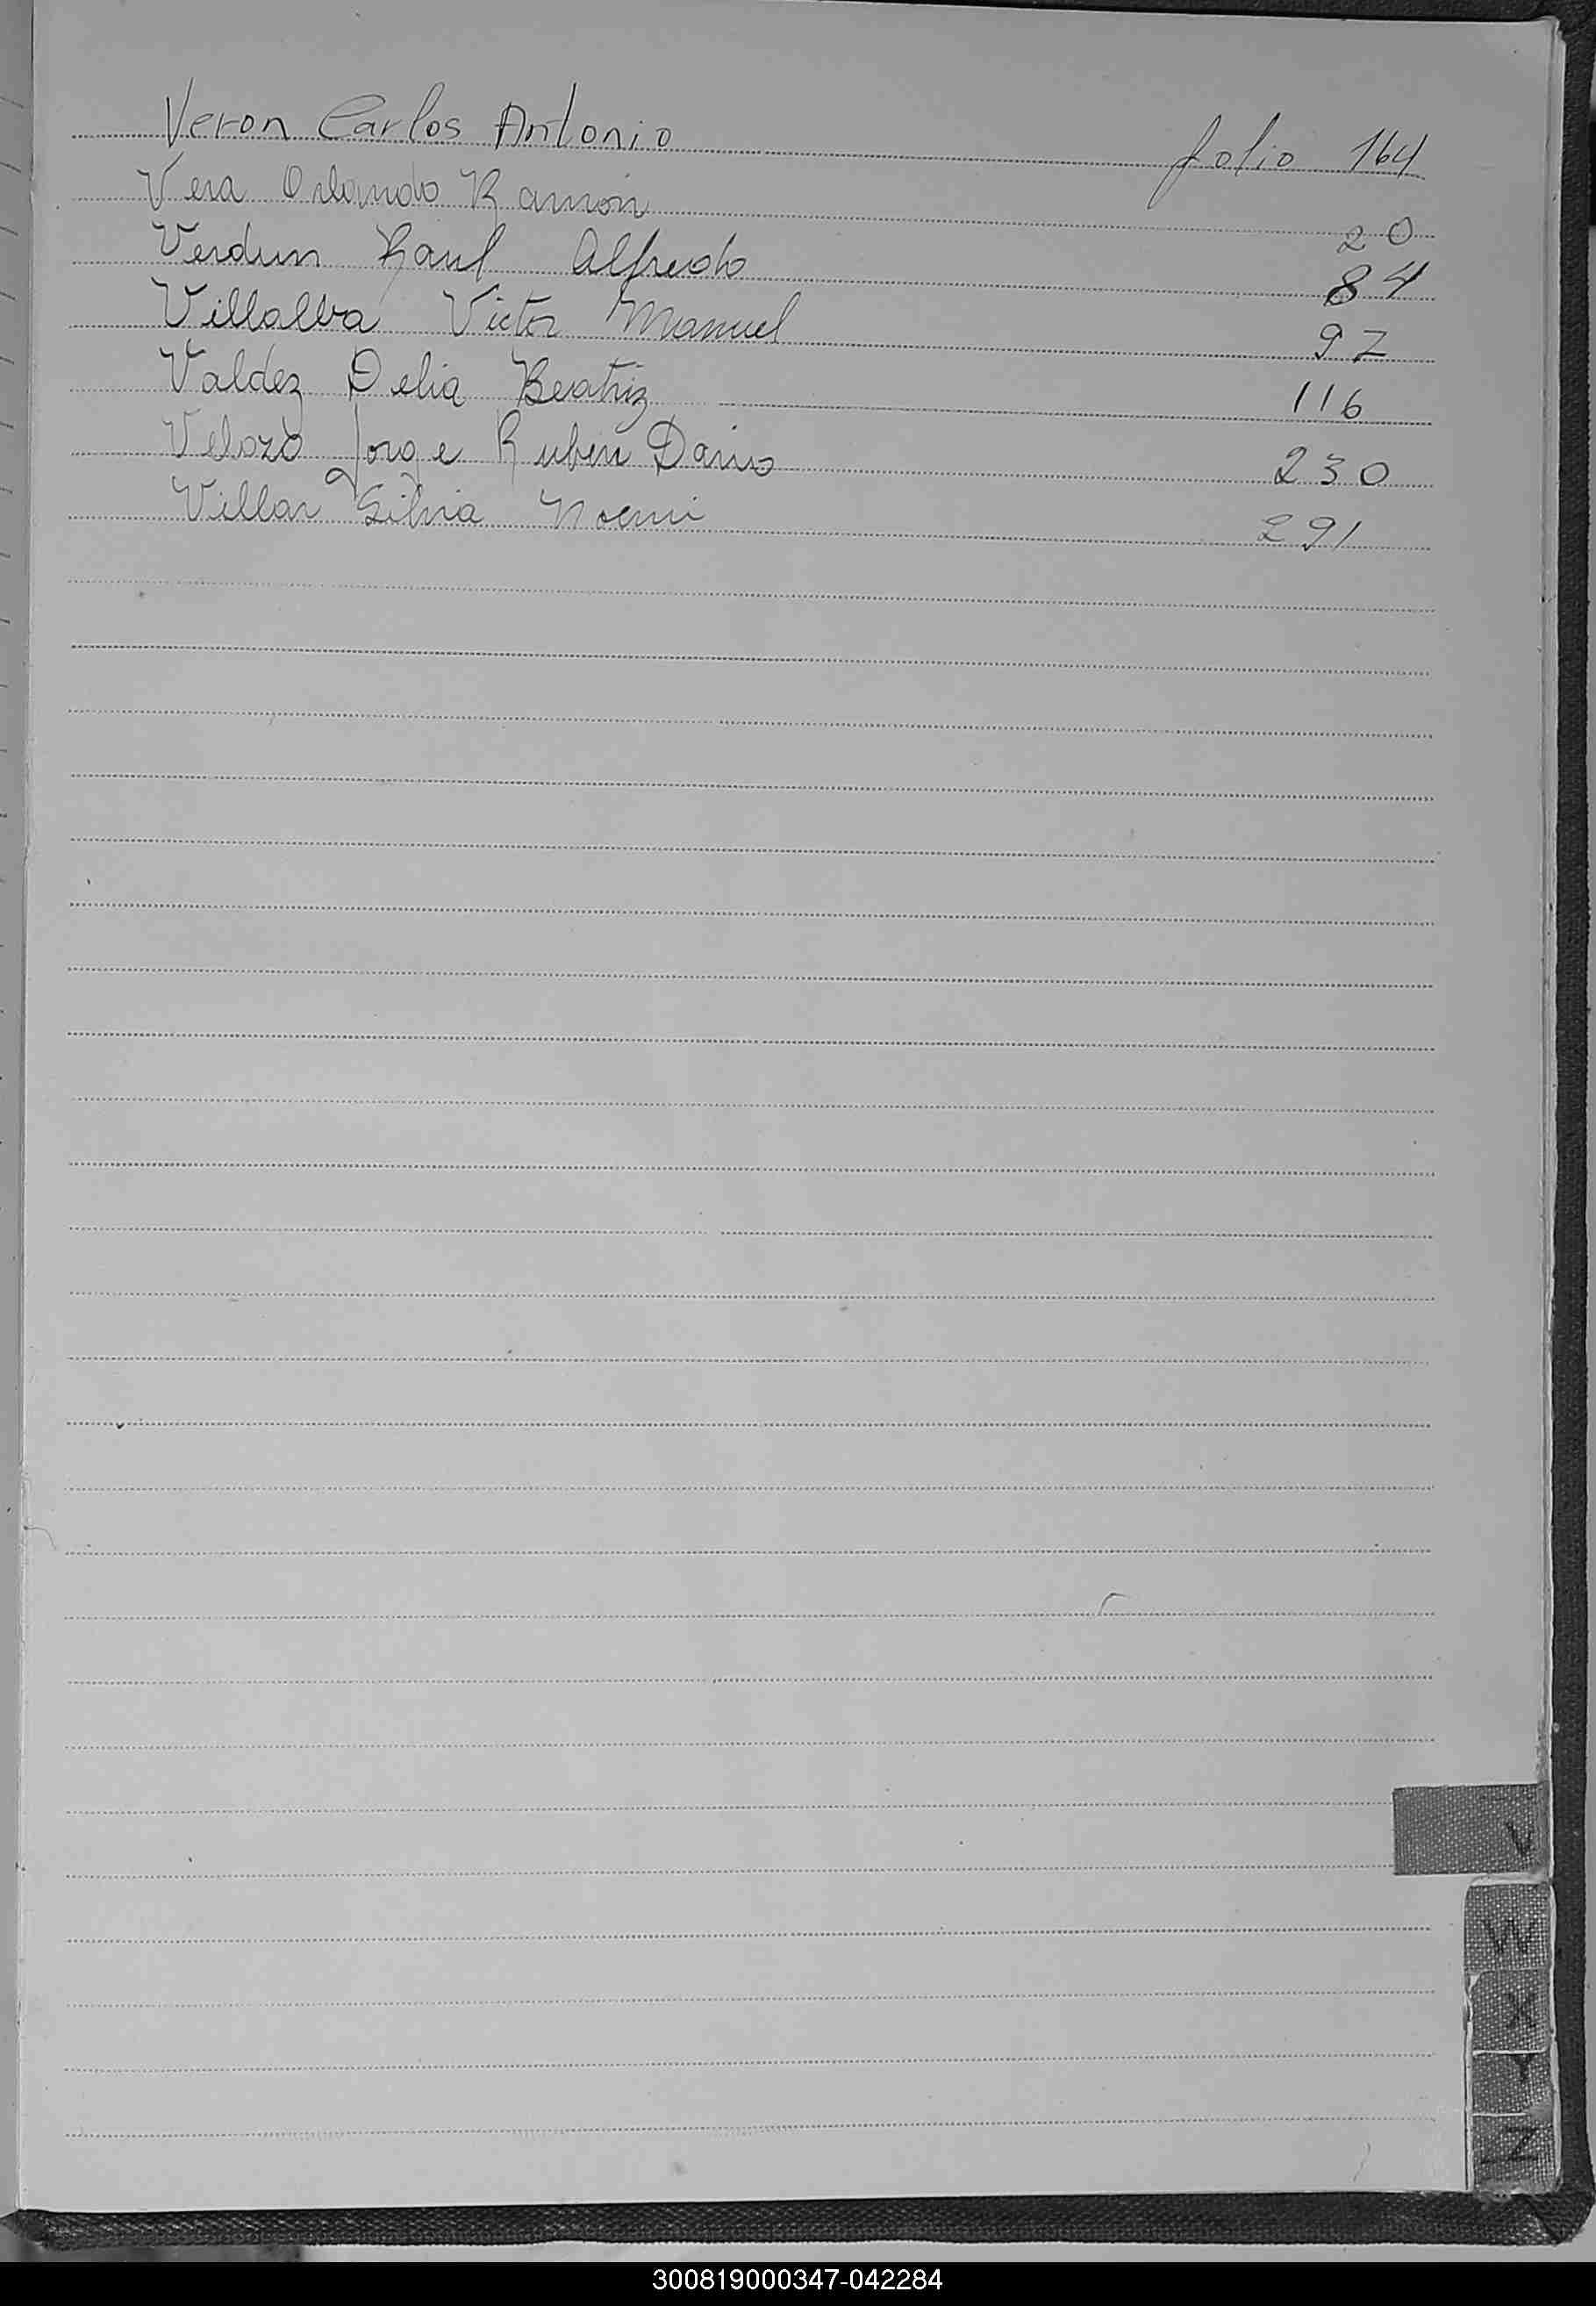 Veron Carlos Antonio folio 164
Vera Orlando Ramon 20
Verdun Raul Alfredo 84
Villalba Victor Manuel 97
Valdez Delia Beatriz 116
Velozo Jorge Ruben Dario 230
Villar Silvia Noemi 291
V
W
X
Y
Z
300819000347-042284